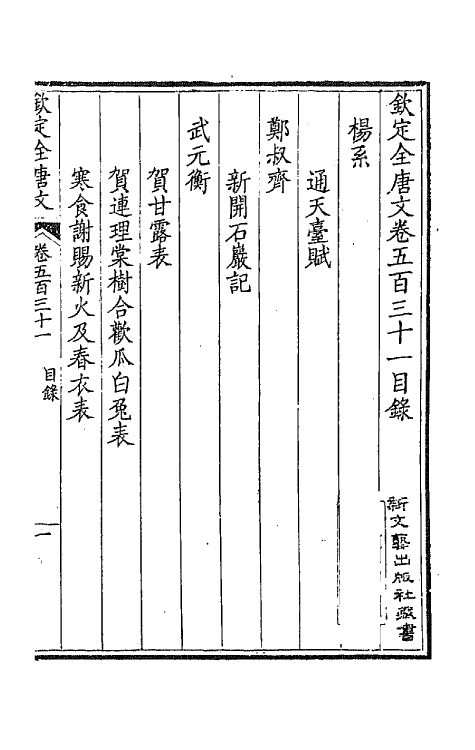 欽定全唐文卷五百三十一目錄
新文藝出版社藏書
楊系
通天臺賦
鄭叔齊
新開石巖記
武元衡
賀甘露表
賀連理棠樹合歡瓜白兔表
寒食謝賜新火及春衣表
欽定全唐文
卷五百三十一
目錄
一